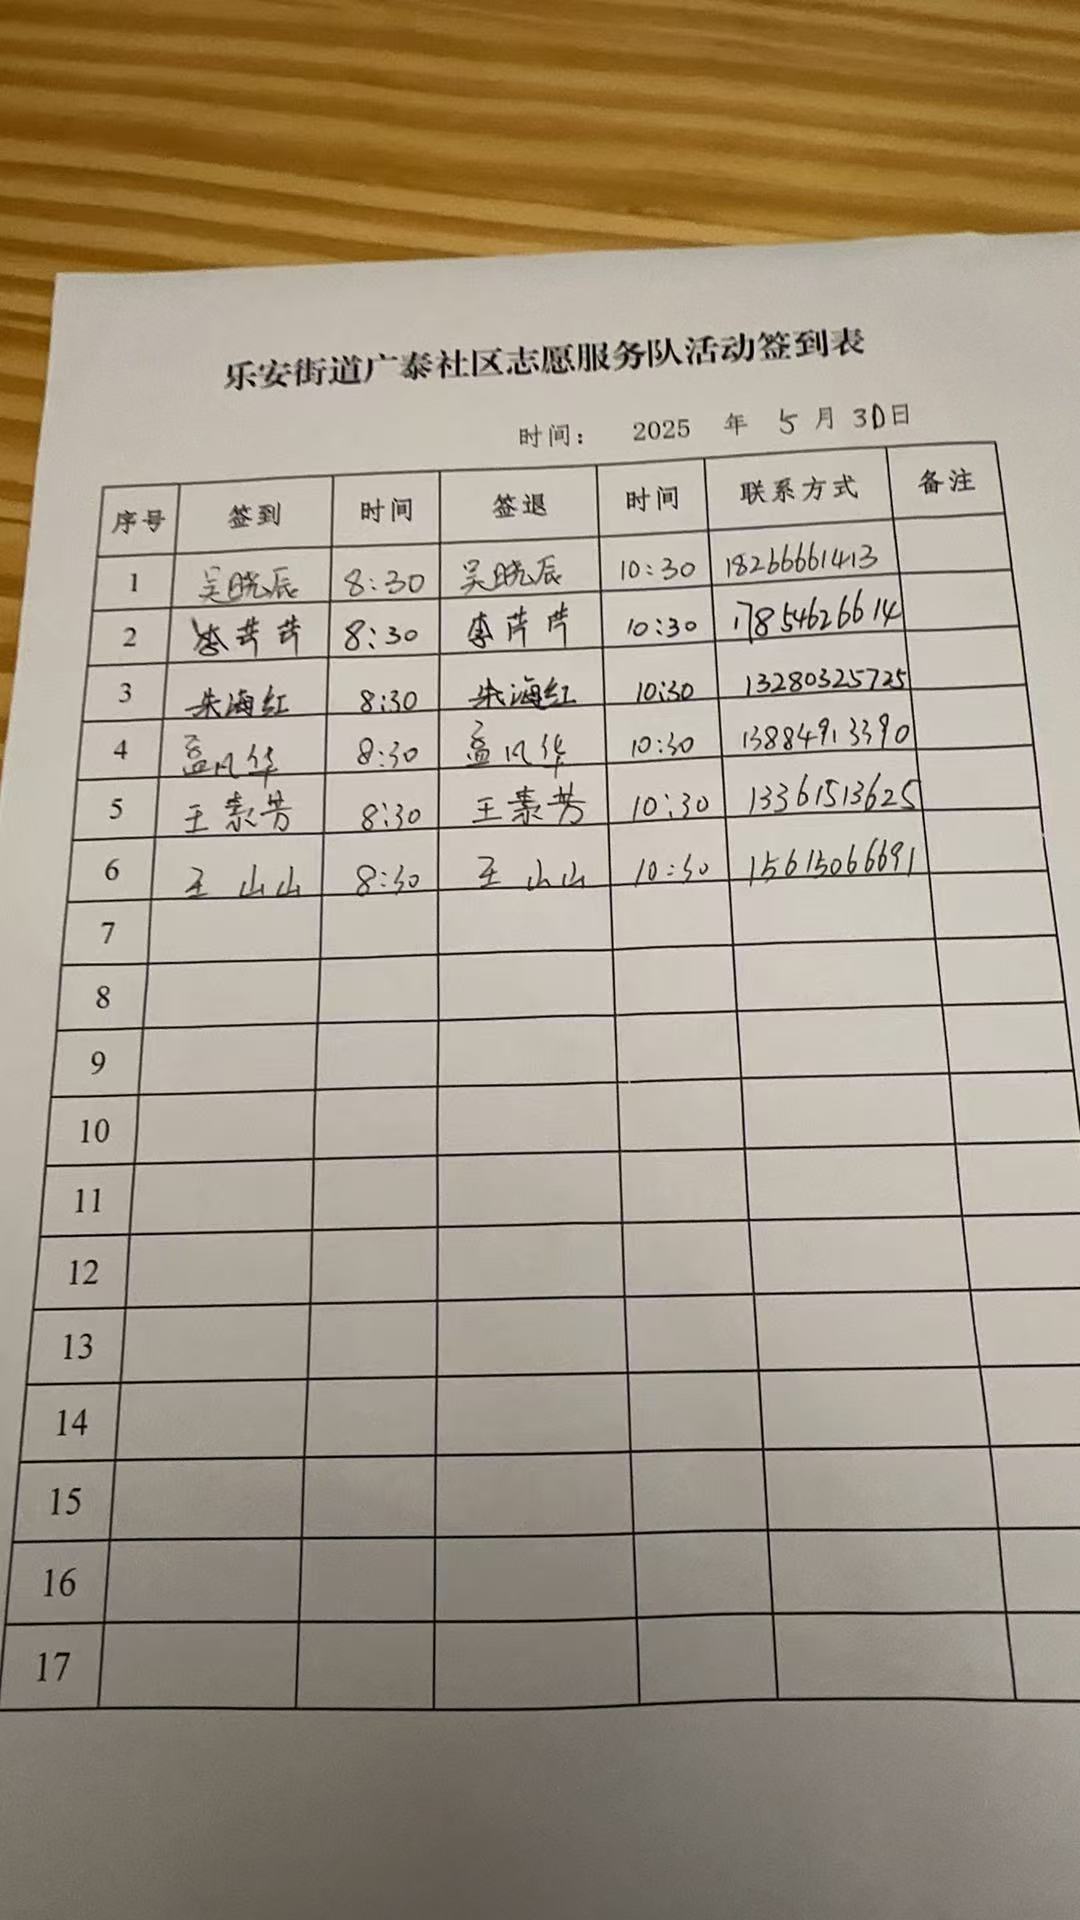 乐安街道广泰社区志愿服务队活动签到表
时间： 2025 年 5 月 30日
序号 签到 时间 签退 时间 联系方式 备注
1 吴晓辰 8:30 吴晓辰 10:30 18266661413
2 李芹芹 8:30 李芹芹 10:30 17854626614
3 朱海红 8:30 朱海红 10:30 13280325725
4 孟凡华 8:30 孟凡华 10:30 13884913390
5 王素芳 8:30 王素芳 10:30 13361513625
6 王山山 8:30 王山山 10:30 15615066691
7
8
9
10
11
12
13
14
15
16
17